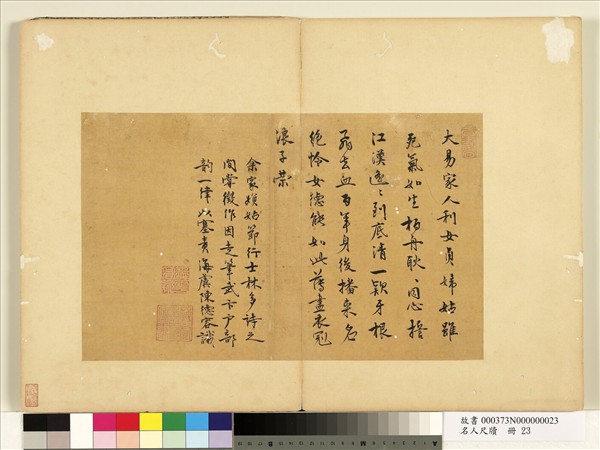 大易家人利女貞婦姑雖
死氣如生柏舟耿耿同心
江漢 到底清一 牙根
去血 第身後播 名
絕憐女德能如此 畫衣冠
浪子榮
余家 姑節行士林多詩之
間 徵作因走筆武 戶部
韵一律以塞責海虞陳 識
故書 000373N000000023
名人尺牘 冊 23